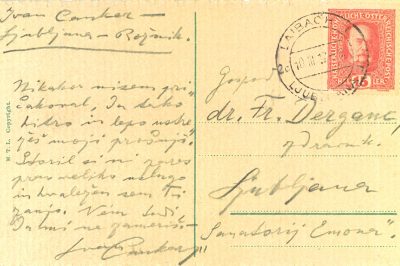 Ivan Cankar —
Ljubljana — Rožnik.
Nikakor nisem pri-
čakoval, da tako
hitro in lepo
moji prošnji.
Storil si mi zares
prav veliko uslugo
in hvaležen sem Ti
zanjo. Vem tudi,
da mi ne zameriš.
Ivan Cankar
M. T. L. Copyright.
LAIBACH
LJUBLJANA
KAISERLICHE KÖNIGLICHE ÖSTERREICHISCHE POST
HELLER
Gospod
dr. Fr. Derganc,
zdravnik
Ljubljana
Sanatorij Emona".